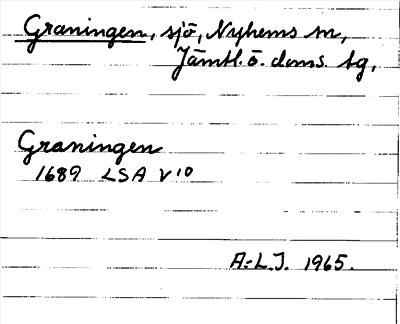 Graningen, sjö, Nyhems sn,
Jämtl. ö. doms. tg,
Graningen
1689 LSA V10
A.-L.J. 1965.